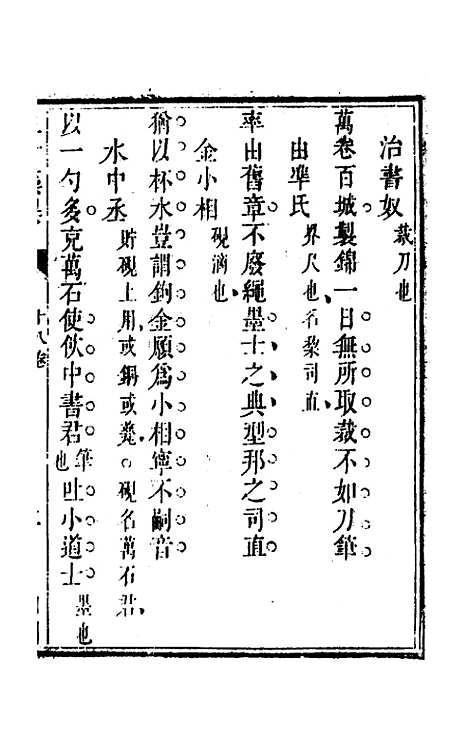 治書奴 裁刀也
萬卷百城製錦一日無所取裁不如刀筆
由準氏 界尺也名黎司直
率由舊章不廢繩墨士之典型邦之司直
金小相 硯滴也
猶以杯水豈謂鉤金願為小相寧不嗣音
水中丞 貯硯上用或銅或甆○硯名萬石君
以一勺多克萬石使伙中書君筆也吐小道士墨也
十八卷